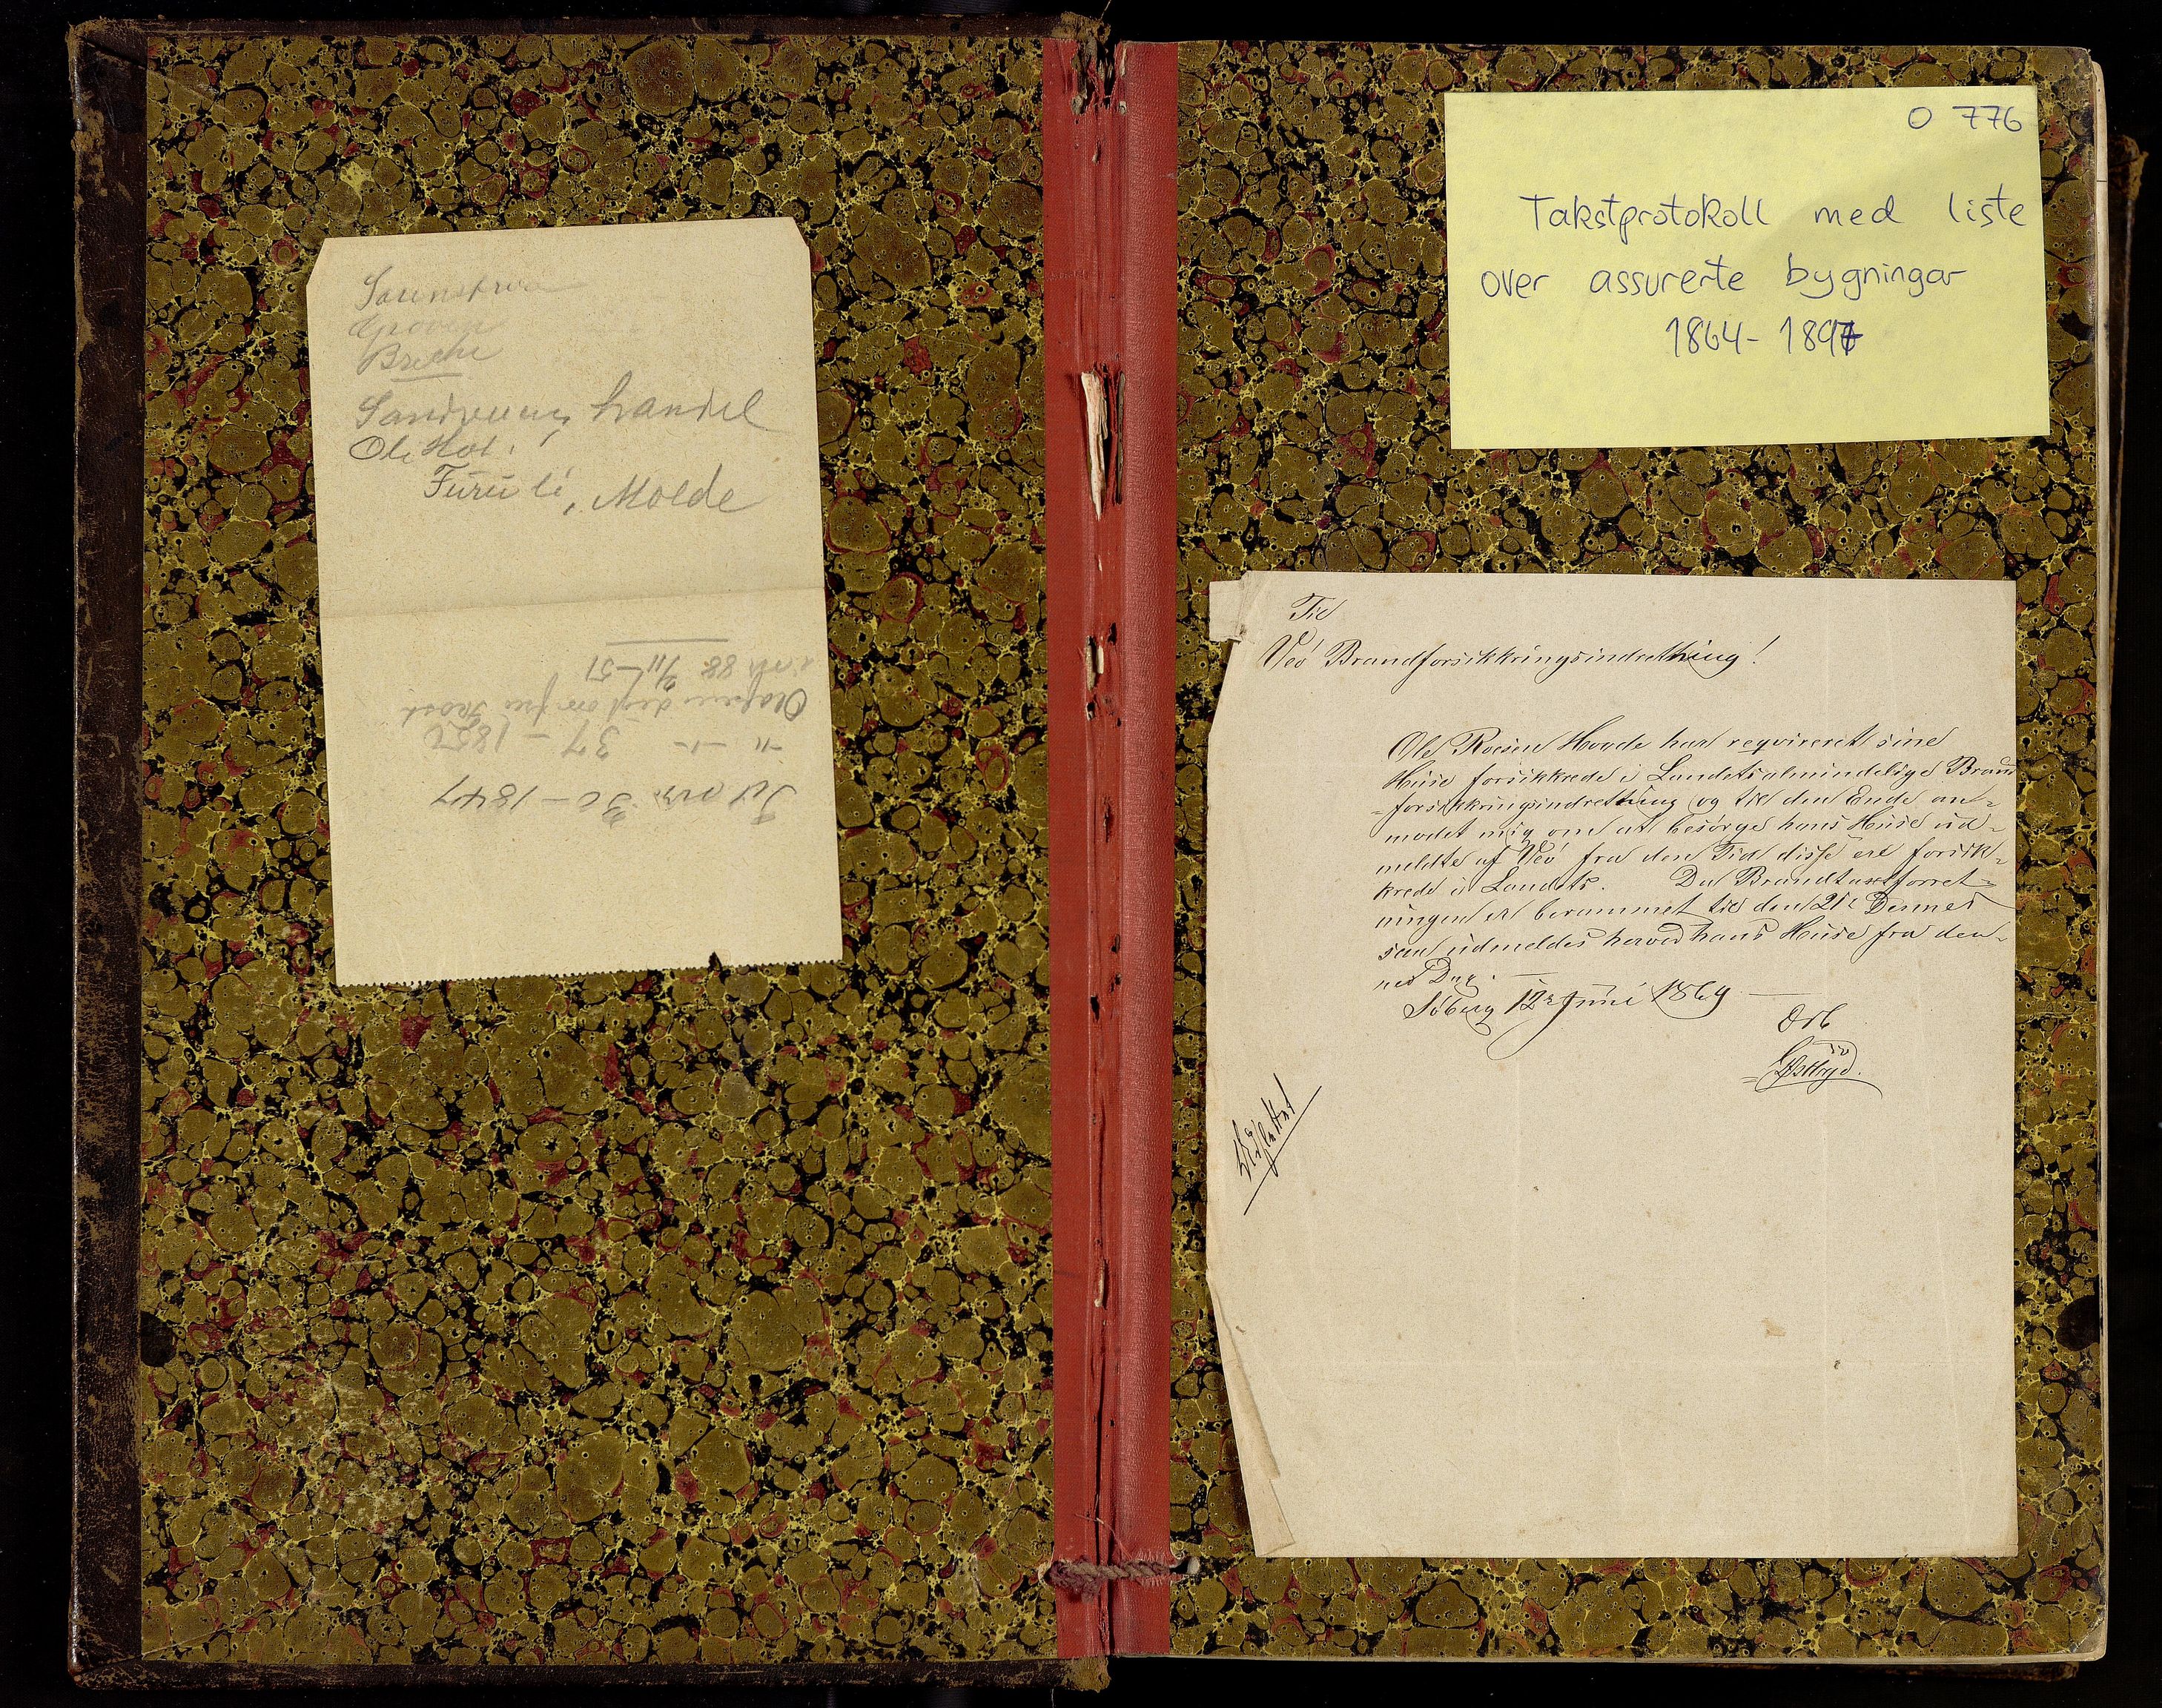 Grover
Brekke
handel
Ole Hol.
Furuli, Molde
30 - 1847
37 - 1850
88 9/11-51
O 776
Takstprotokoll med liste
over assurerte bygningar
1864-1897
Til
Veö Brandforsikkringsindretning!
Ole Roesen Hovde har reqvireret sine
Huse forsikkrede i Landets almindelige Brand
=forsikkringsindretning og til den Ende an=
modet mig om at besørge hans Huse ud=
meldte af Veö fra den Tid disse ere forsik=
krede i Landets. Da Brandtaxtforret=
ningen er berammet til den 21de Dennes
saa udmeldes herved hans Huse fra den=
nes Dag. —
Söberg 12te Juni 1869 —
Ærb
Udslettet